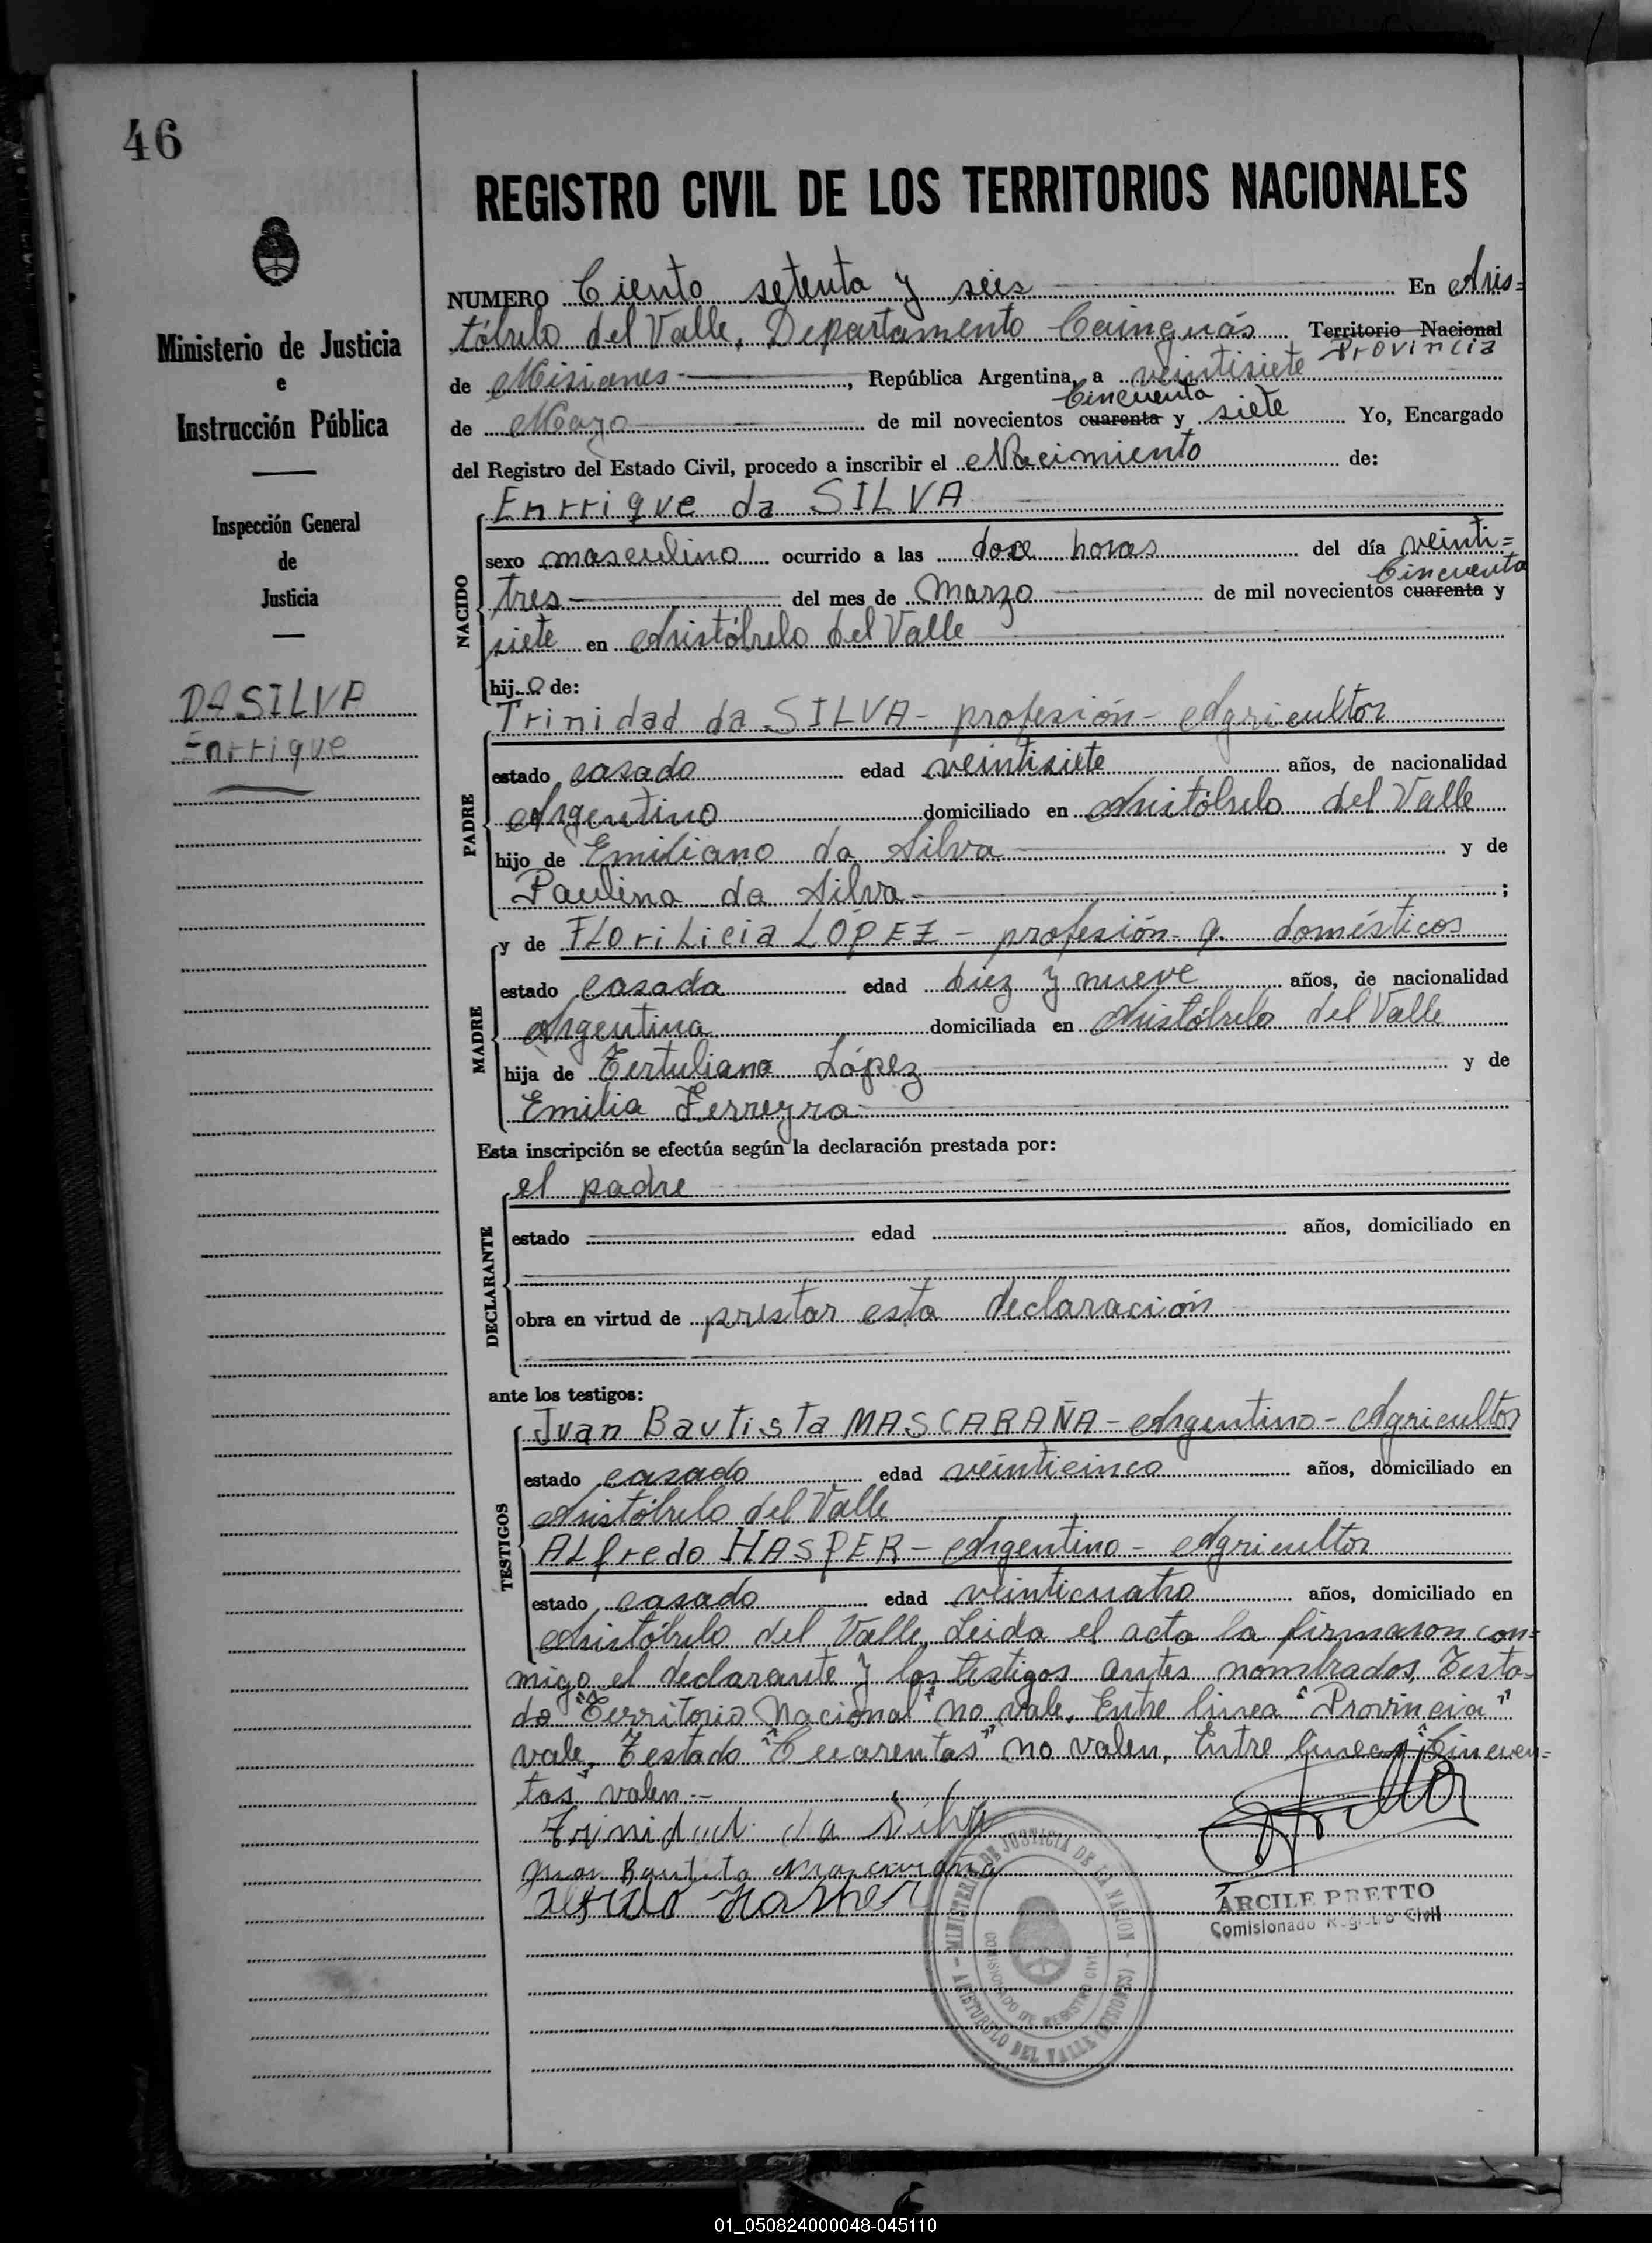 46
REGISTRO CIVIL DE LOS TERRITORIOS NACIONALES
Ministerio de Justicia
e
Instrucción Pública
Inspección General
de
Justicia
DA SILVA
Enrrique
NUMERO Ciento setenta y seis En Aris=
tóbulo del Valle, Departamento Cainguás Territorio Nacional
Provincia
de Misiones, República Argentina, a veintisiete
Cincuenta
de Marzo de mil novecientos cuarenta y siete Yo, Encargado
del Registro del Estado Civil, procedo a inscribir el Nacimiento de:
NACIDO
Enrrique da SILVA
sexo masculino ocurrido a las doce horas del día veinti=
Cincuenta
tres del mes de Marzo de mil novecientos cuarenta y
siete en Aristóbulo del Valle
hijo de:
PADRE
Trinidad da SILVA - profesión - Agricultor
estado casado edad veintisiete años, de nacionalidad
Argentino domiciliado en Aristóbulo del Valle
hijo de Emiliano da Silva y de
Paulina da Silva ;
MADRE
y de FLoriLicia LÓPEZ - profesión - q. domésticos
estado casada edad diez y nueve años, de nacionalidad
Argentina domiciliada en Aristóbulo del Valle
hija de Tertuliano López y de
Emilia Ferreyra
Esta inscripción se efectúa según la declaración prestada por:
DECLARANTE
el padre
estado edad años, domiciliado en
obra en virtud de prestar esta declaración
ante los testigos:
TESTIGOS
Juan Bautista MASCARAÑA - Argentino - Agricultor
estado casado edad veinticinco años, domiciliado en
Aristóbulo del Valle
ALfredo HASPER - Argentino - Agricultor
estado casado edad veinticuatro años, domiciliado en
Aristóbulo del Valle, Leida el acta la firmaron con=
migo el declarante y los testigos antes nombrados, Testa=
do "Territorio Nacional" no vale, Entre linea "Provincia"
vale, Testado "Cuarentas" no valen, Entre lineas "Cincuen=
tas" valen.-
Trinidad da Silva
Juan Bautista Mascaraña
Alfredo Hasper
ARCILE PRETTO
Comisionado Registro Civil
MINISTERIO DE JUSTICIA DE LA NACION - ARISTOBULO DEL VALLE (MISIONES)
COMISIONADO DE REGISTRO CIVIL
01_050824000048-045110